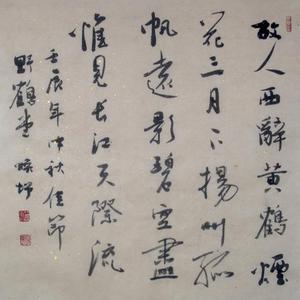 故人西辭黃鶴煙
花三月下揚州孤
帆遠影碧空盡
惟見長江天際流
壬辰年中秋佳節
野鶴堂